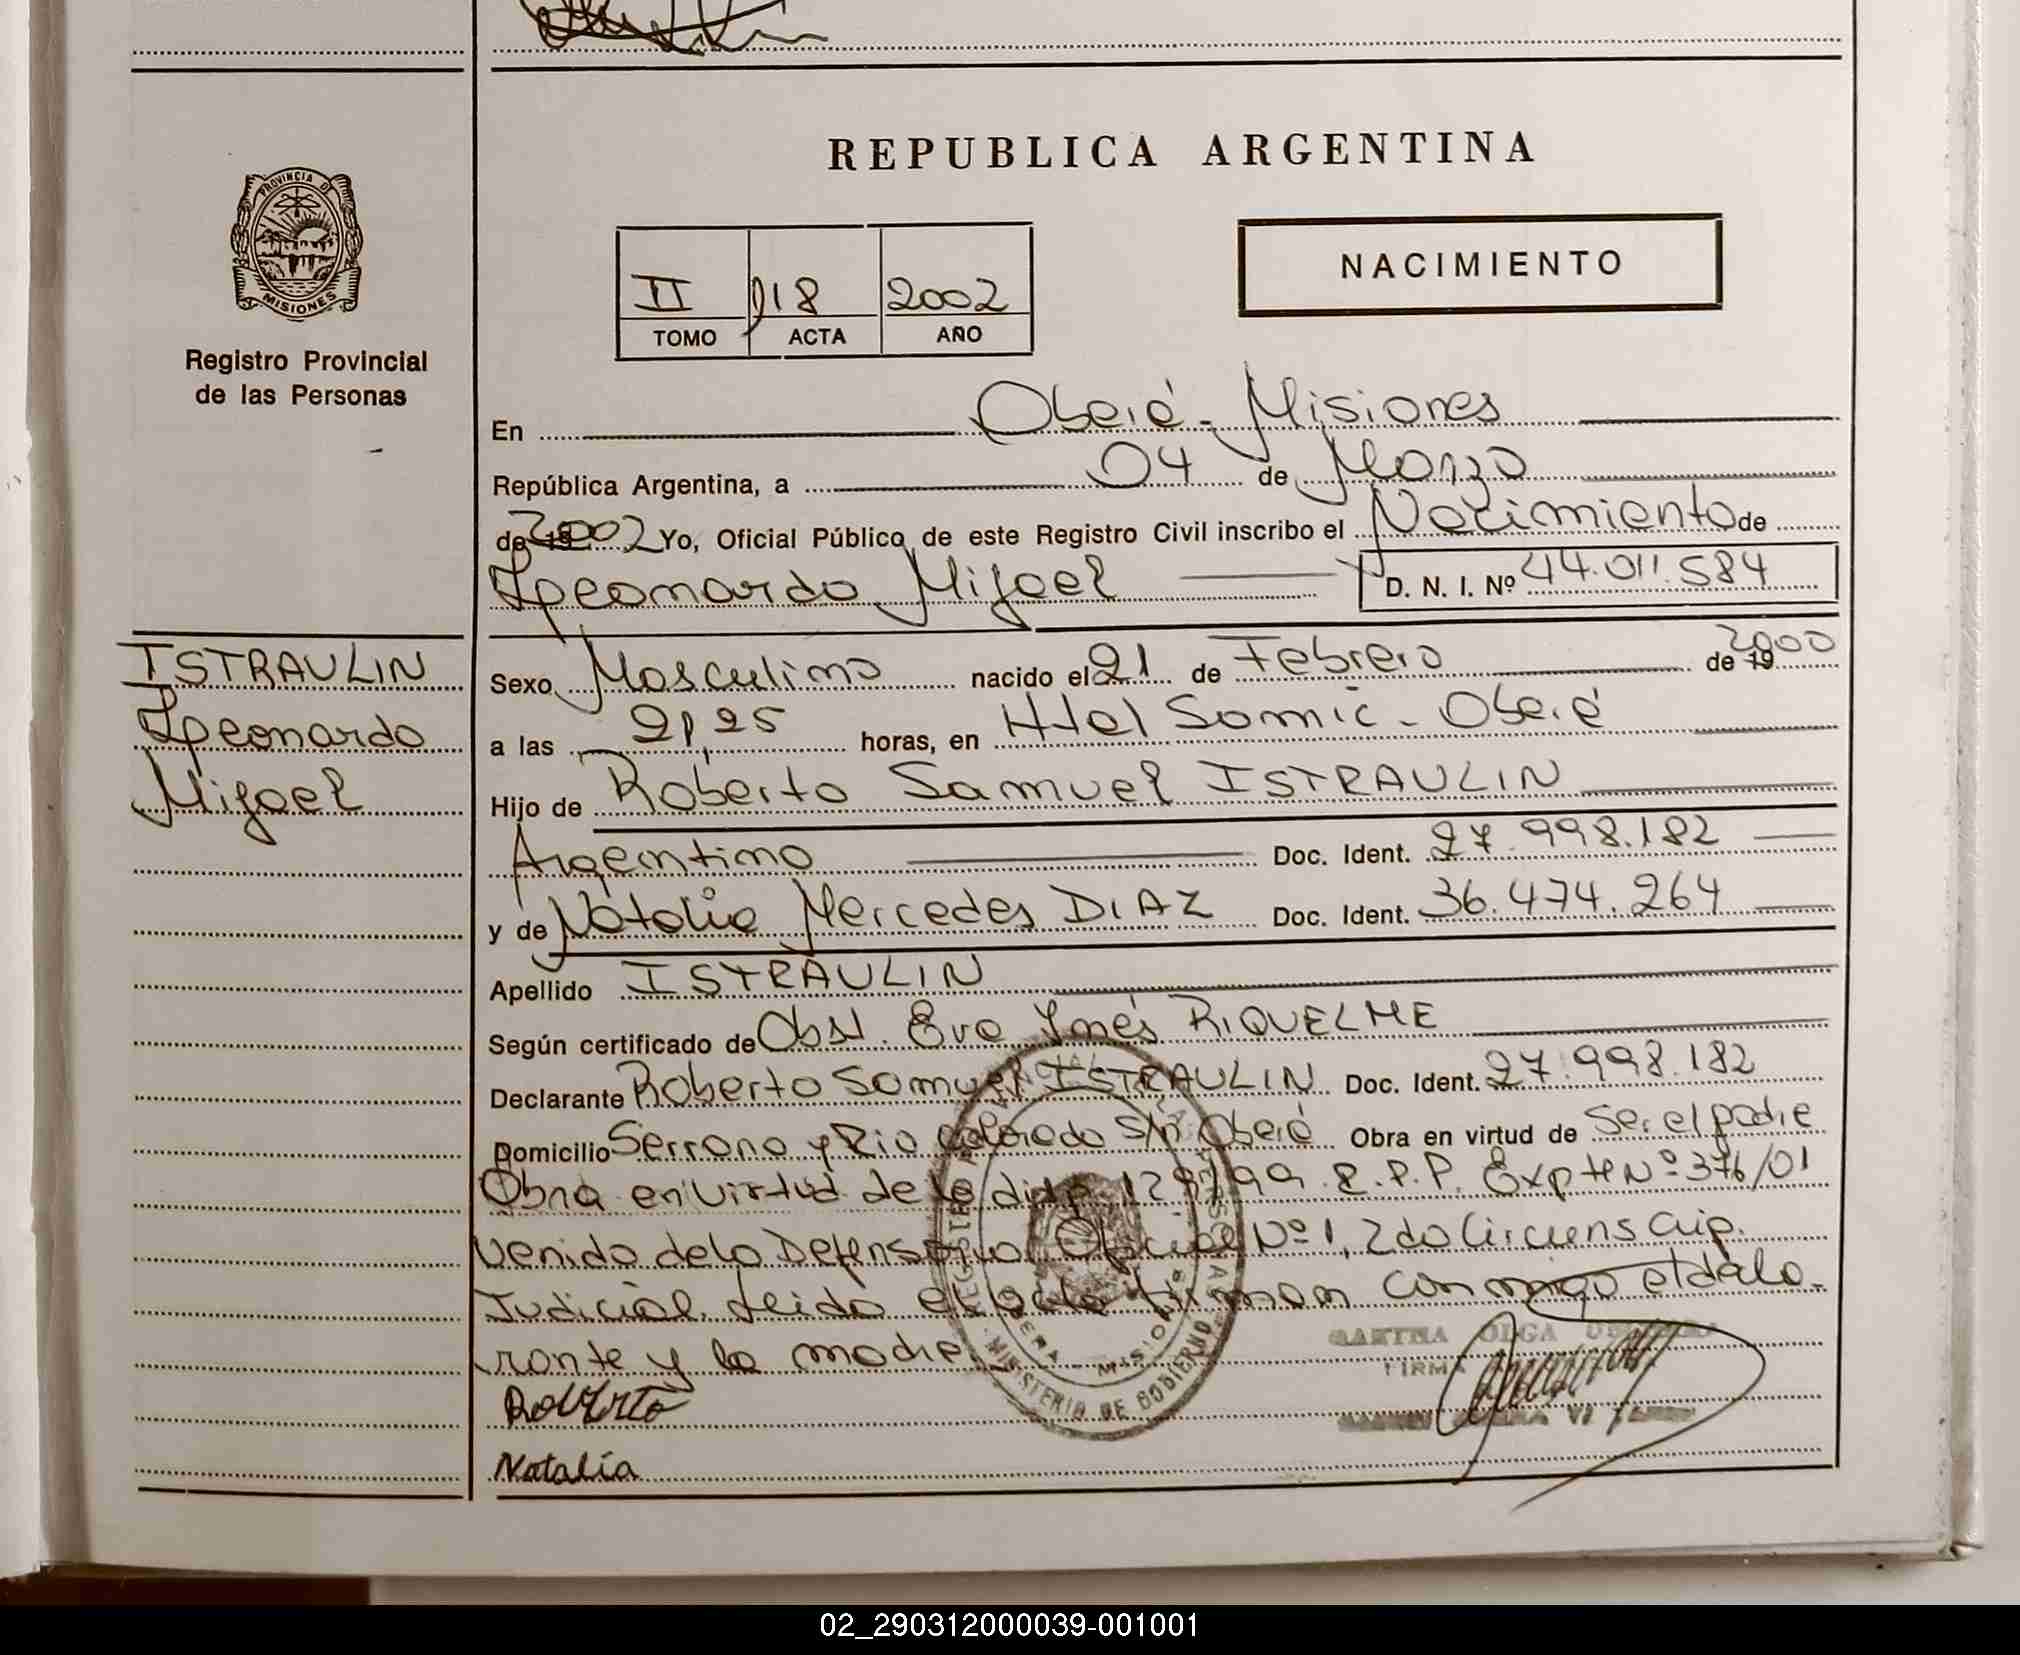 REPUBLICA ARGENTINA
PROVINCIA DE
MISIONES
Registro Provincial
de las Personas
II 118 2002
TOMO ACTA AÑO
NACIMIENTO
En Oberá - Misiones
República Argentina, a 04 de Marzo
de 2002 Yo, Oficial Público de este Registro Civil inscribo el Nacimiento de
Leonardo Misael D. N. I. Nº 44.011.584
ISTRAULIN
Leonardo
Misael
Sexo Masculino nacido el 21 de Febrero de 19 2000
a las 21,25 horas, en Htel Samic - Oberá
Hijo de Roberto Samuel ISTRAULIN
Argentino Doc. Ident. 27.998.182
y de Natalia Mercedes DIAZ Doc. Ident. 36.474.264
Apellido ISTRAULIN
Según certificado de Obst. Eva Ynés RIQUELME
Declarante Roberto Samuel ISTRAULIN Doc. Ident. 27.998.182
Domicilio Serrano y Rio Colorado S/nº Oberá Obra en virtud de Ser el padre
Obra en virtud de la disp. 1287/99 R.P.P. Expte Nº 376/01
venido de la Defensoria Oficial Nº 1, 2do Circunscrip.
Judicial. Leida el acta firman conmigo el dcla-
rante y la madre.
MINISTERIO DE GOBIERNO
MISIONES
OLGA
FIRMA
Roberto
Natalia
02_290312000039-001001